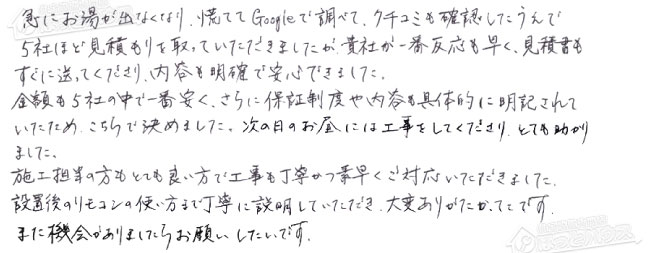 急にお湯が出なくなり、慌ててGoogleで調べて、クチコミも確認したうえで
5社ほど見積もりを取っていただきましたが、貴社が一番反応も早く、見積書も
すぐに送ってくださり、内容も明確で安心できました。
金額も5社の中で一番安く、さらに保証制度や内容も具体的に明記されて
いたため、こちらで決めました。次の日のお昼には工事をしてくださり、とても助かり
ました。
施工担当の方もとても良い方で工事も丁寧かつ素早くご対応いただきました。
設置後のリモコンの使い方まで丁寧に説明していただき、大変ありがたかったです。
また機会がありましたらお願いしたいです。